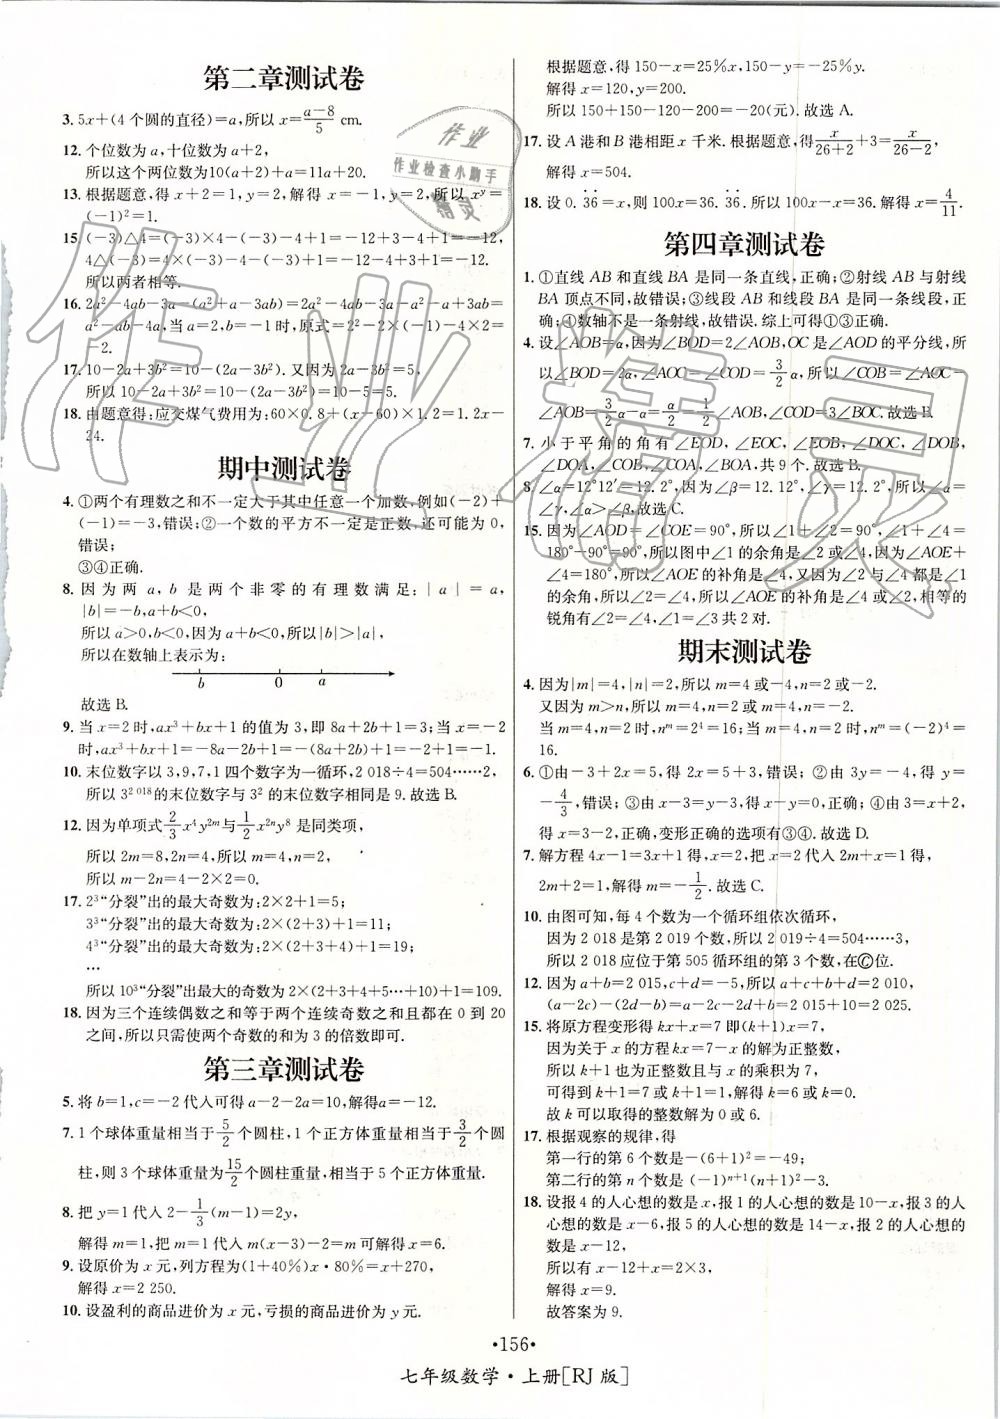 第二章测试卷
3. 5x+(4个圆的直径)=a,所以 x=\frac{a-8}{5} cm.
12. 个位数为 a,十位数为 a+2,
所以这个两位数为10(a+2)+a=11a+20.
13. 根据题意,得 x+2=1,y=2,解得 x=-1,y=2,所以 x^y=
(-1)²=1.
15. (-3)△4=(-3)×4-(-3)-4+1=-12+3-4+1=-12,
4△(-3)=4×(-3)-4-(-3)+1=-12-4+3+1=-12.
所以两者相等.
16. 2a²-4ab-3a-(a²+a-3ab)=2a²-4ab-3a-a²-a+3ab=
a²-ab-4a,当 a=2,b=-1时,原式=2²-2×(-1)-4×2=
-2.
17. 10-2a+3b²=10-(2a-3b²).又因为2a-3b²=5,
所以10-2a+3b²=10-(2a-3b²)=10-5=5.
18. 由题意得:应交煤气费用为:60×0.8+(x-60)×1.2=1.2x-
24.
期中测试卷
4. ①两个有理数之和不一定大于其中任意一个加数,例如(-2)+
(-1)=-3,错误;②一个数的平方不一定是正数,还可能为 0,
错误;
③④正确.
8. 因为两 a,b 是两个非零的有理数满足:|a|=a,
|b|=-b,a+b<0,
所以 a>0,b<0,因为 a+b<0,所以|b|>|a|,
所以在数轴上表示为:
b 0 a
故选 B.
9. 当 x=2时,ax³+bx+1的值为3,即8a+2b+1=3;当 x=-2
时,ax³+bx+1=-8a-2b+1=-(8a+2b)+1=-2+1=-1.
10. 末位数字以3,9,7,1四个数字为一循环,2 018÷4=504……2,
所以 3^{2 018}的末位数字与3²的末位数字相同是9.故选 B.
12. 因为单项式\frac{2}{3}x⁴y^{2m}与\frac{1}{2}x^{2n}y⁸是同类项,
所以2m=8,2n=4,所以 m=4,n=2,
所以 m-2n=4-2×2=0.
17. 2³“分裂”出的最大奇数为:2×2+1=5;
3³“分裂”出的最大奇数为:2×(2+3)+1=11;
4³“分裂”出的最大奇数为:2×(2+3+4)+1=19;
…
所以10³“分裂”出最大的奇数为 2×(2+3+4+5…+10)+1=109.
18. 因为三个连续偶数之和等于两个连续奇数之和且都在 0 到 20
之间,所以只需使两个奇数的和为 3 的倍数即可.
第三章测试卷
5. 将 b=1,c=-2代入可得 a-2-2a=10,解得a=-12.
7. 1个球体重量相当于\frac{5}{2}个圆柱,1个正方体重量相当于\frac{3}{2}个圆
柱,则3个球体重量为\frac{15}{2}个圆柱重量,相当于5个正方体重量.
8. 把 y=1代入 2-\frac{1}{3}(m-1)=2y,
解得 m=1,把 m=1代入 m(x-3)-2=m可得 x=6.
9. 设原价为 x 元,列方程为(1+40%)x·80%=x+270,
解得 x=2 250.
10. 设盈利的商品进价为 x 元,亏损的商品进价为 y 元.
根据题意,得150-x=25%x,150-y=-25%y.
解得 x=120,y=200.
所以150+150-120-200=-20(元).故选 A.
17. 设 A 港和 B 港相距 x 千米.根据题意,得\frac{x}{26+2}+3=\frac{x}{26-2}.
解得 x=504.
18. 设 0.3̇6̇=x,则 100x=36.3̇6̇.所以100x-x=36.解得 x=\frac{4}{11}.
第四章测试卷
1. ①直线 AB 和直线 BA 是同一条直线,正确;②射线 AB 与射线
BA 顶点不同,故错误;③线段 AB 和线段 BA 是同一条线段,正
确;④数轴不是一条射线,故错误.综上可得①③正确.
4. 设∠AOB=α,因为∠BOD=2∠AOB,OC 是∠AOD 的平分线,所
以∠BOD=2α,∠AOC=∠COD=\frac{3}{2}α,所以∠BOC=∠AOC-
∠AOB=\frac{3}{2}α-α=\frac{α}{2}=\frac{1}{2}∠AOB,∠COD=3∠BOC.故选 B.
7. 小于平角的角有∠EOD,∠EOC,∠EOB,∠DOC,∠DOB,
∠DOA,∠COB,∠COA,∠BOA,共 9 个.故选 B.
8. ∠α=12°12′=12.2°,因为∠β=12.12°,∠γ=12.2°,所以∠α=
∠γ,故∠α>∠β.故选 C.
15. 因为∠AOD=∠COE=90°,所以∠1+∠2=90°,∠1+∠4=
180°-90°=90°,所以图中∠1 的余角是∠2或∠4,因为∠AOE+
∠4=180°,所以∠AOE 的补角是∠4,又因为∠2与∠4都是∠1
的余角,所以∠2=∠4,所以∠AOE 的补角是∠4或∠2,相等的
锐角有∠2=∠4,∠1=∠3共 2 对.
期末测试卷
4. 因为|m|=4,|n|=2,所以 m=4或-4,n=2或-2.
又因为 m>n,所以 m=4,n=2或 m=4,n=-2.
当 m=4,n=2时,n^m=2⁴=16;当 m=4,n=2时,n^m=(-2)⁴=
16.
6. ①由-3+2x=5,得 2x=5+3,错误;②由 3y=-4,得 y=
-\frac{4}{3},错误;③由 x-3=y-3,得 x-y=0,正确;④由3=x+2,
得 x=3-2,正确,变形正确的选项有③④.故选 D.
7. 解方程4x-1=3x+1得,x=2,把 x=2代入2m+x=1得,
2m+2=1,解得 m=-\frac{1}{2}.故选 C.
10. 由图可知,每 4 个数为一个循环组依次循环,
因为 2 018 是第 2 019 个数,所以 2 019÷4=504……3,
所以 2 018 应位于第 505 循环组的第 3 个数,在Ⓒ位.
12. 因为 a+b=2 015,c+d=-5,所以 a+c+b+d=2 010,
(a-2c)-(2d-b)=a-2c-2d+b=2 015+10=2 025.
15. 将原方程变形得 kx+x=7即(k+1)x=7,
因为关于 x 的方程 kx=7-x 的解为正整数,
所以 k+1也为正整数且与 x 的乘积为 7,
可得到 k+1=7或 k+1=1,解得 k=6或 k=0.
故 k 可以取得的整数解为 0 或 6.
17. 根据观察的规律,得
第一行的第 6 个数是-(6+1)²=-49;
第二行的第 n 个数是(-1)^{n+1}(n+1)²-3.
18. 设报 4 的人心想的数是 x,报 1 的人心想的数是 10-x,报 3 的人
心想的数是 x-6,报 5 的人心想的数是 14-x,报 2 的人心想的
数是 x-12,
所以有 x-12+x=2×3,
解得 x=9.
故答案为 9.
·156·
七年级数学·上册[RJ 版]
作业
作业检查小助手
精灵
作业精灵